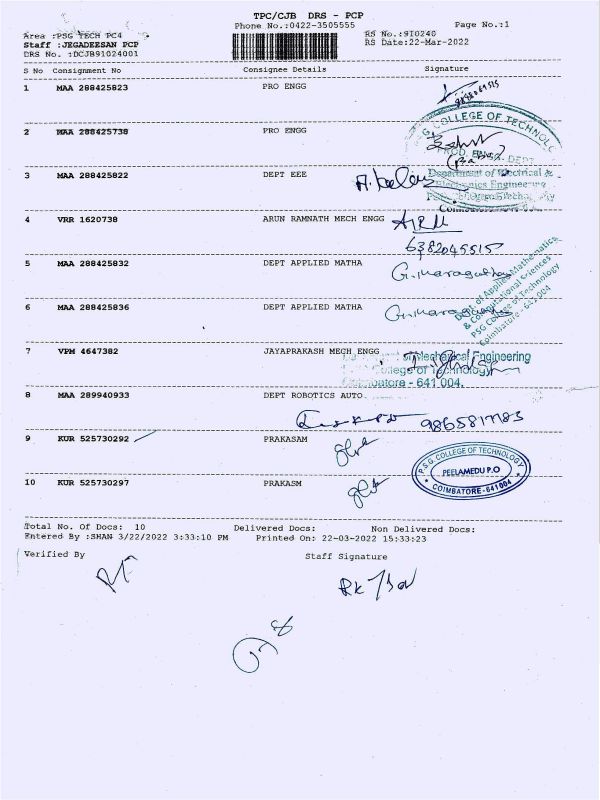 TPC/CJB DRS - PCP
Phone No.:0422-3505555
Page No.:1
Area :PSG TECH PC4
RS No.:910240
Staff :JEGADEESAN PCP
RS Date:22-Mar-2022
DRS No. :DCJB91024001
S No Consignment No Consignee Details Signature
1 MAA 288425823 PRO ENGG
2 MAA 288425738 PRO ENGG
COLLEGE OF TECHNOLO
3 MAA 288425822 DEPT EEE
Department of Electrical &
4 VRR 1620738 ARUN RAMNATH MECH ENGG
6382045515
5 MAA 288425832 DEPT APPLIED MATHA
6 MAA 288425836 DEPT APPLIED MATHA
Dept. of Applied Mathematics
& Computational Sciences
PSG College of Technology
Coimbatore - 641 004
7 VPM 4647382 JAYAPRAKASH MECH ENGG
of Mechanical Engineering
College of Technology
Coimbatore - 641 004.
8 MAA 289940933 DEPT ROBOTICS AUTO
9 KUR 525730292 PRAKASAM
P.S.G. COLLEGE OF TECHNOLOGY
PEELAMEDU P.O
COIMBATORE-641004
10 KUR 525730297 PRAKASM
Total No. Of Docs: 10 Delivered Docs: Non Delivered Docs:
Entered By :SHAN 3/22/2022 3:33:10 PM Printed On: 22-03-2022 15:33:23
Verified By Staff Signature